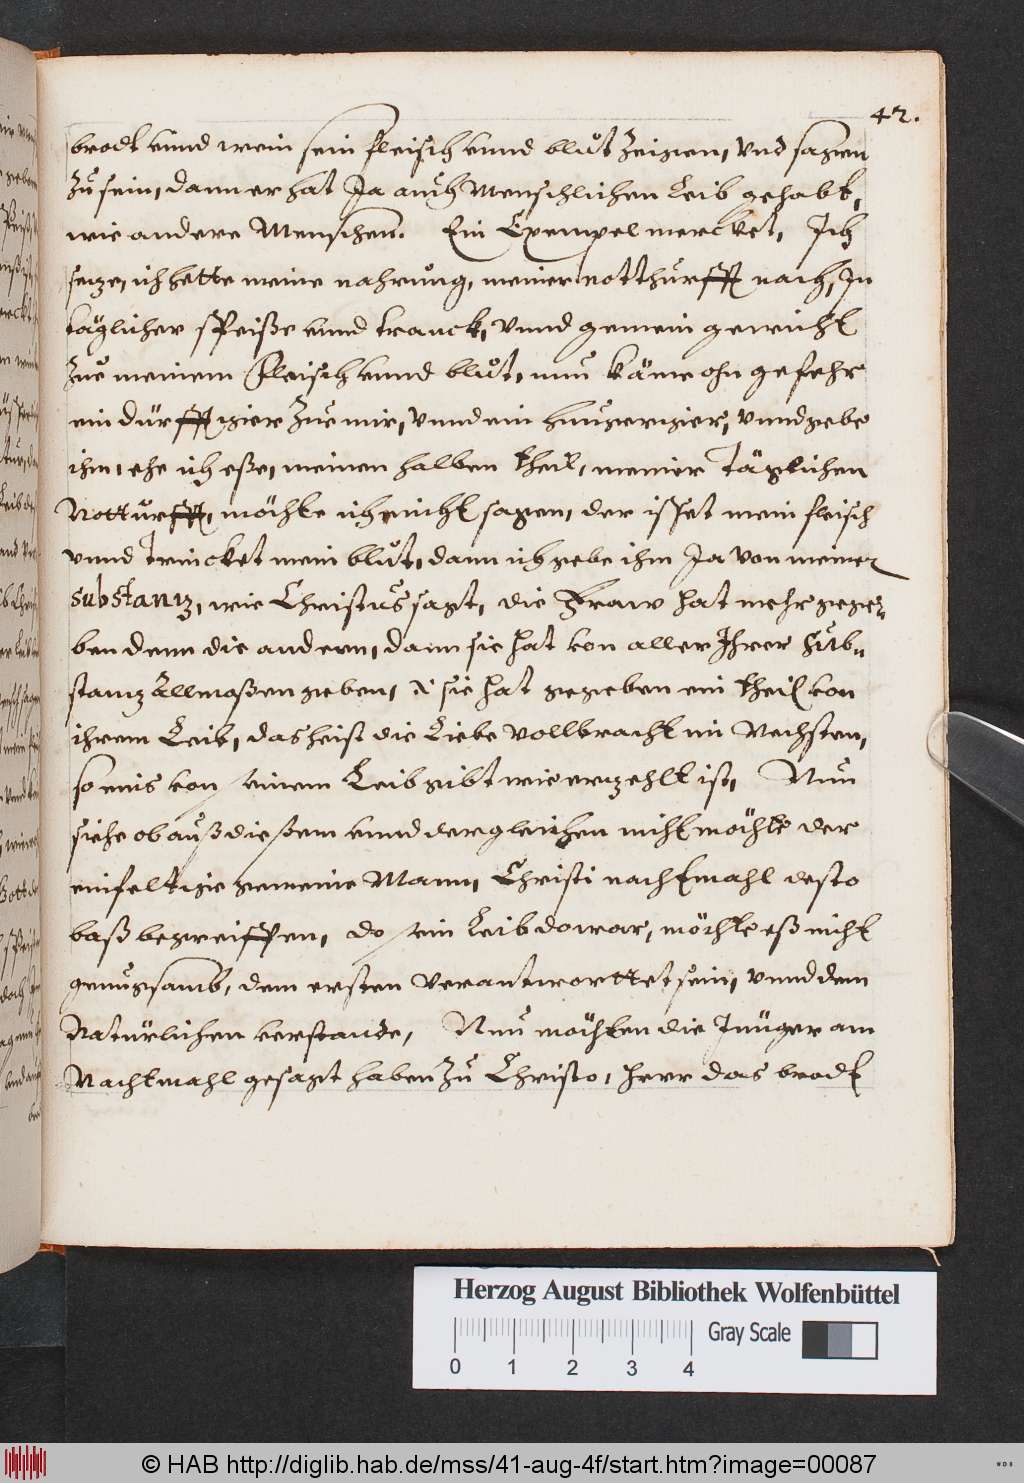 42.
brodt vnnd wein sein fleisch vnnd bluͦt zeigen, vnd sagen
Zuͦ sein, dann er hat Ja auch Menschlichen Leib gehabt,
wie andere Menschen. Ein Exempel mercket, Ich
setze, ich hette meine nahrung, meiner notthurfft nach, In
täglicher speiße vnnd tranck, vnnd gemein gewicht
Zue meinem fleisch vnnd bluͦt, nun käme ohn gefehr
ein dürfftiger Zue mir, vnnd ein hungeriger, vnnd gebe
ihm, ehe ich eße, meinen halben theil, meiner Täglichen
Notturfft, möchte ich nicht sagen, der isset mein fleisch
vnnd Trincket mein bluͦt, dann ich gebe ihm Ja von meiner
substantz, wie Christus sagt, die Fraw hat mehr gege„
ben denn die andern, dann sie hat von aller Ihrer Sub„
stantz Allmoßen geben, sie hat gegeben ein theil von
ihrem Leib, das heist die Liebe vollbracht im Nechsten,
so eins von seinem Leib gibt wie erzehlt ist, Nun
siehe ob auß dießem vnnd dergleichen nicht möchte der
einfeltige gemeine Mann, Christi nachtmahl desto
baß begreiffen, do sein Leib do war, möchte eß nicht
genugsamb, dem ersten verantworttet sein, vnnd dem
Natürlichen verstande, Nun möchten die Jünger am
Nachtmahl gesagt haben Zuͦ Christo, herr das brodt
Herzog August Bibliothek Wolfenbüttel
Gray Scale
0 1 2 3 4
© HAB http://diglib.hab.de/mss/41-aug-4f/start.htm?image=00087